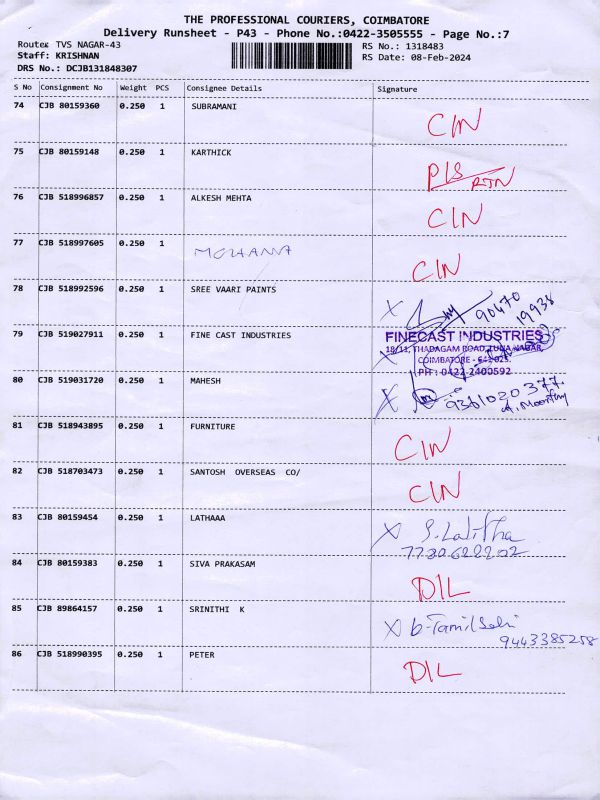 THE PROFESSIONAL COURIERS, COIMBATORE
Delivery Runsheet - P43 - Phone No.:0422-3505555 - Page No.:7
Route: TVS NAGAR-43 RS No.: 1318483
Staff: KRISHNAN RS Date: 08-Feb-2024
DRS No.: DCJB131848307
S No Consignment No Weight PCS Consignee Details Signature
74 CJB 80159360 0.250 1 SUBRAMANI CIN
75 CJB 80159148 0.250 1 KARTHICK D/S RTN
76 CJB 518996857 0.250 1 ALKESH MEHTA CIN
77 CJB 518997605 0.250 1 MOHANA CIN
78 CJB 518992596 0.250 1 SREE VAARI PAINTS X 90470 19938
79 CJB 519027911 0.250 1 FINE CAST INDUSTRIES X FINECAST INDUSTRIES
18/11, THADAGAM ROAD, NAGAR,
COIMBATORE - 641025.
PH : 0422 2400592
80 CJB 519031720 0.250 1 MAHESH X 9361020377.
A. Moorthy
81 CJB 518943895 0.250 1 FURNITURE CIN
82 CJB 518703473 0.250 1 SANTOSH OVERSEAS CO/ CIN
83 CJB 80159454 0.250 1 LATHAAA X S. Lalitha
84 CJB 80159383 0.250 1 SIVA PRAKASAM D/L
85 CJB 89864157 0.250 1 SRINITHI K X b-Tamil Selvi
9443385258
86 CJB 518990395 0.250 1 PETER D/L